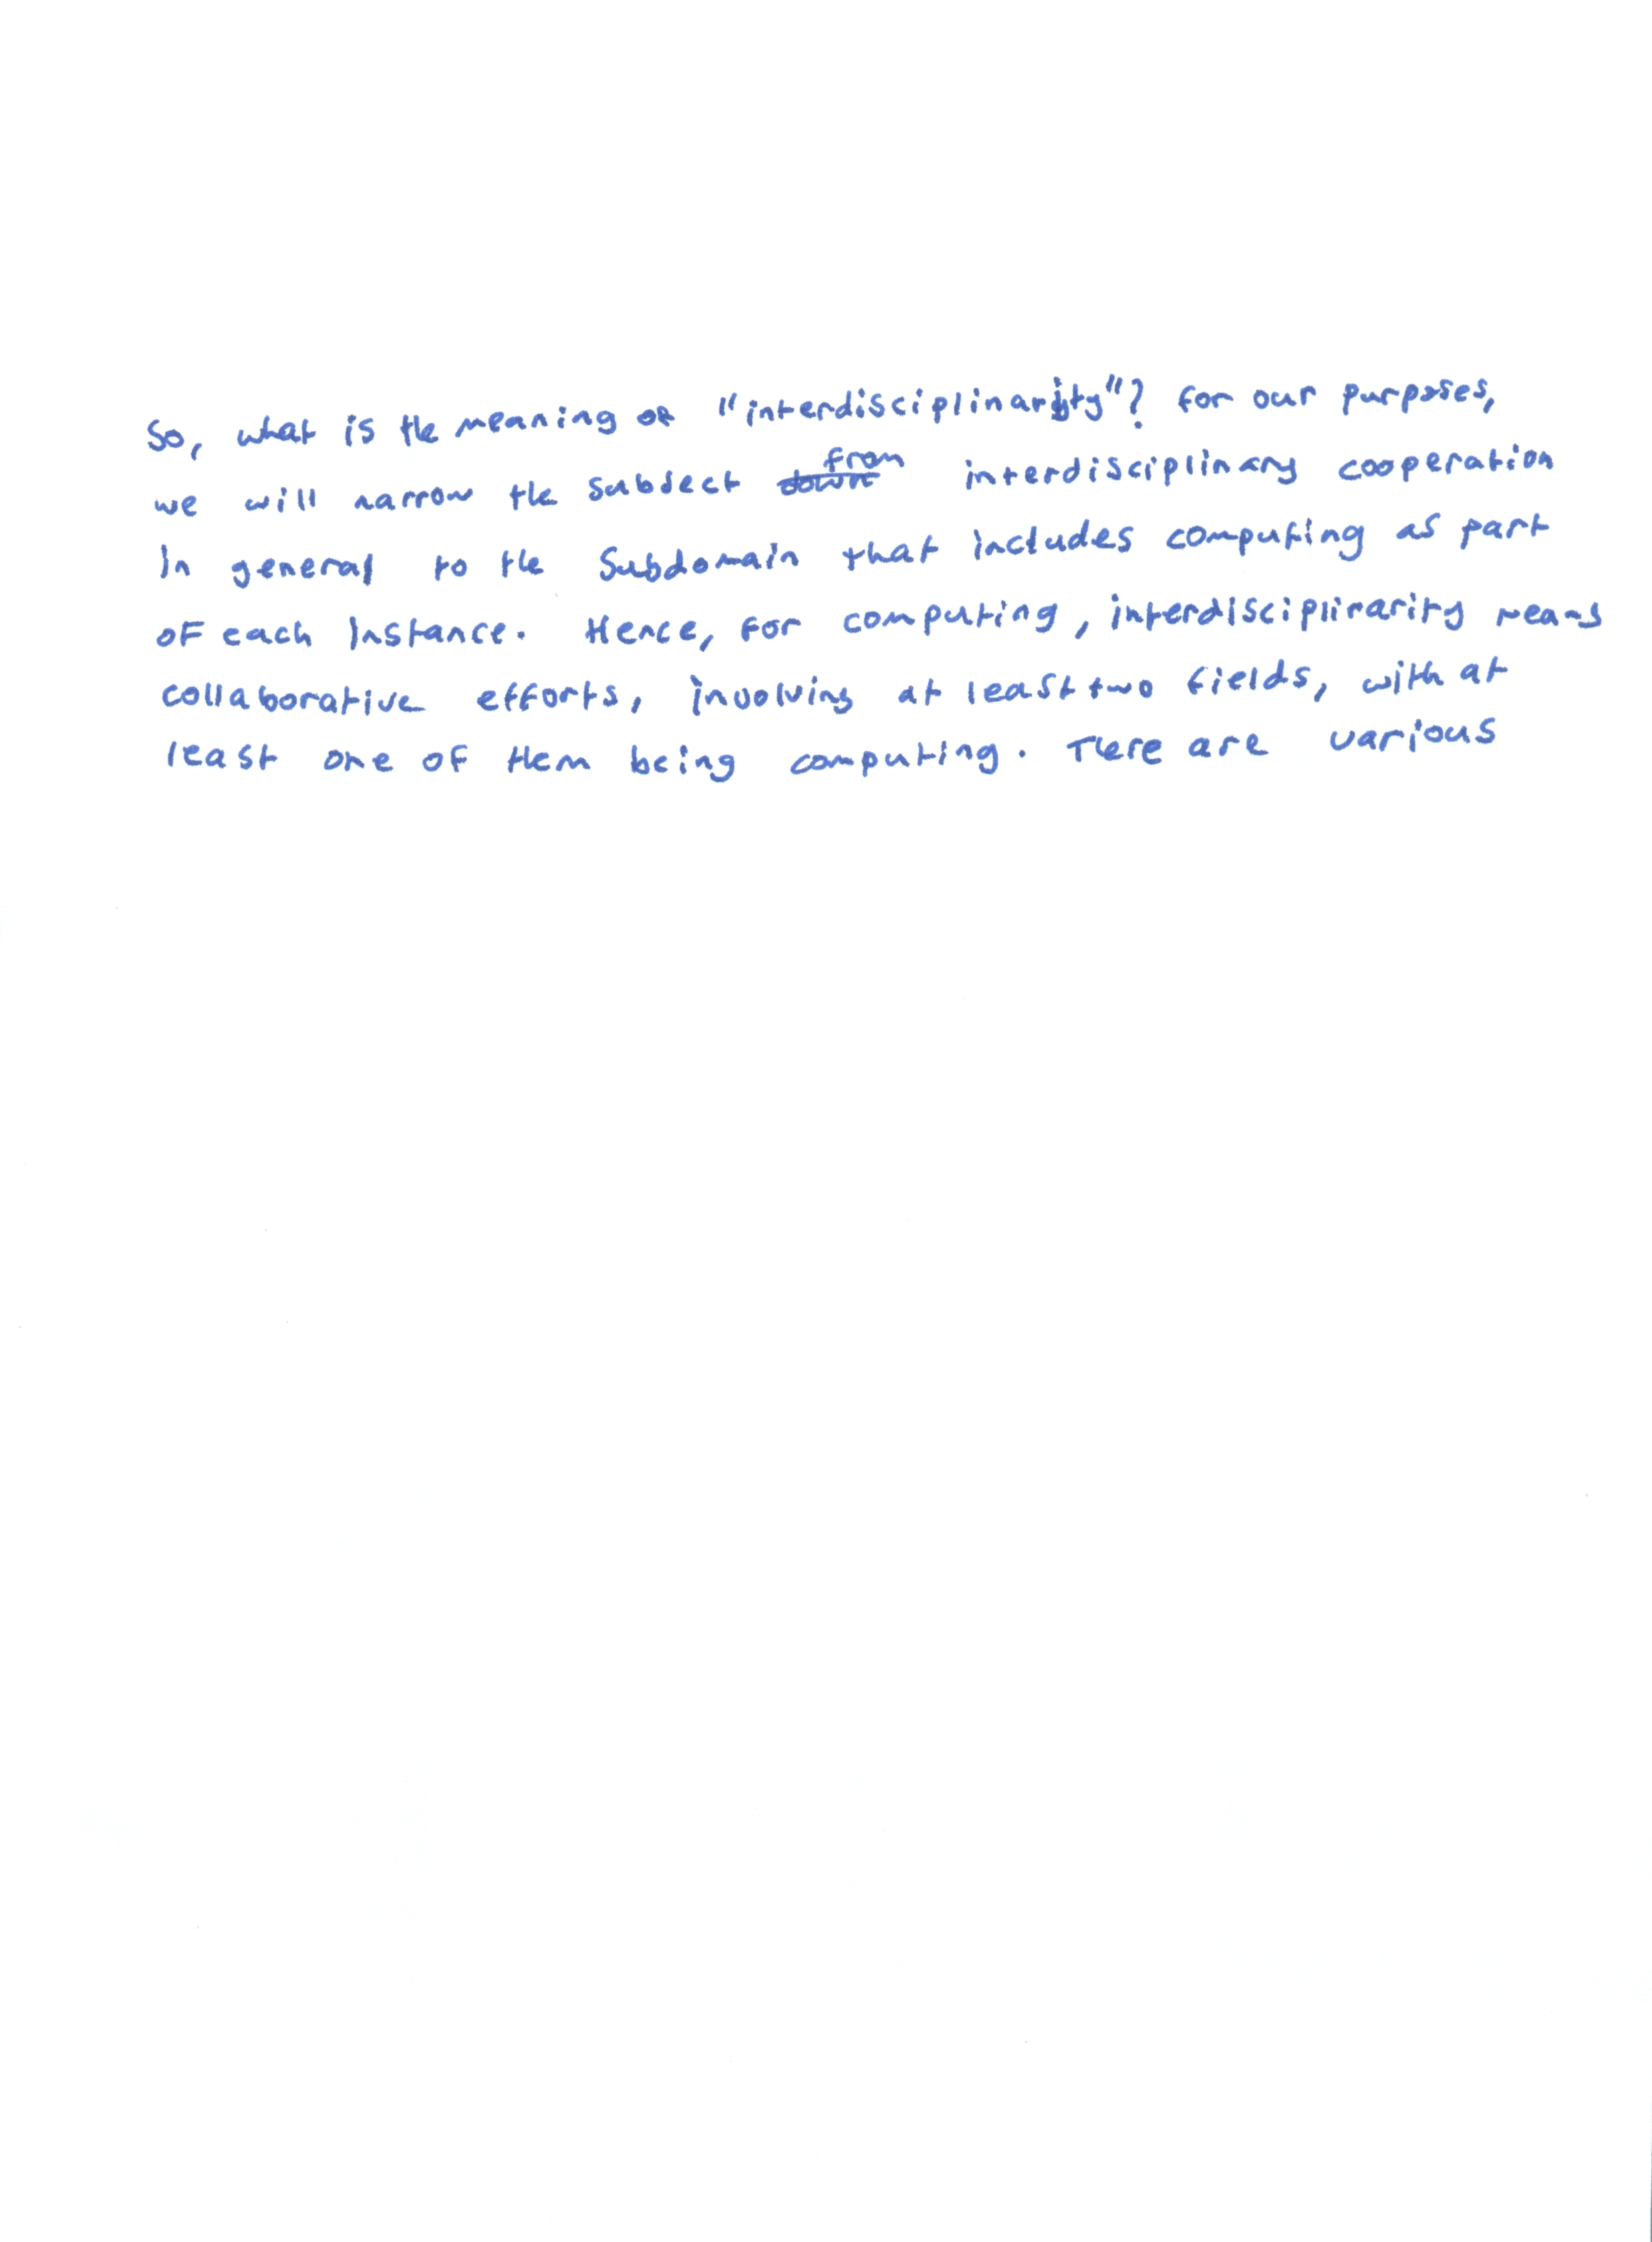 So, what is the meaning of "interdisciplinarity"? For our purposes,
we will narrow the subject from interdisciplinary cooperation
in general to the subdomain that includes computing as part
of each instance. Hence, for computing, interdisciplinarity means
collaborative efforts, involving at least two fields, with at
least one of them being computing. There are various